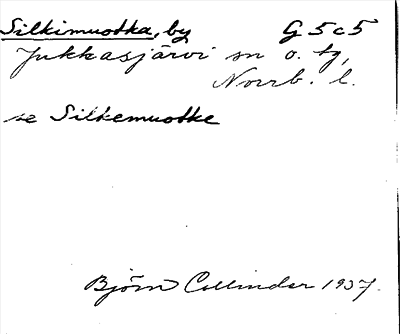 Silkimuotka, by G 5 c 5
Jukkasjärvi sn o. tg,
Norrb. l.
se Silkemuotke
Björn Collinder 1937.